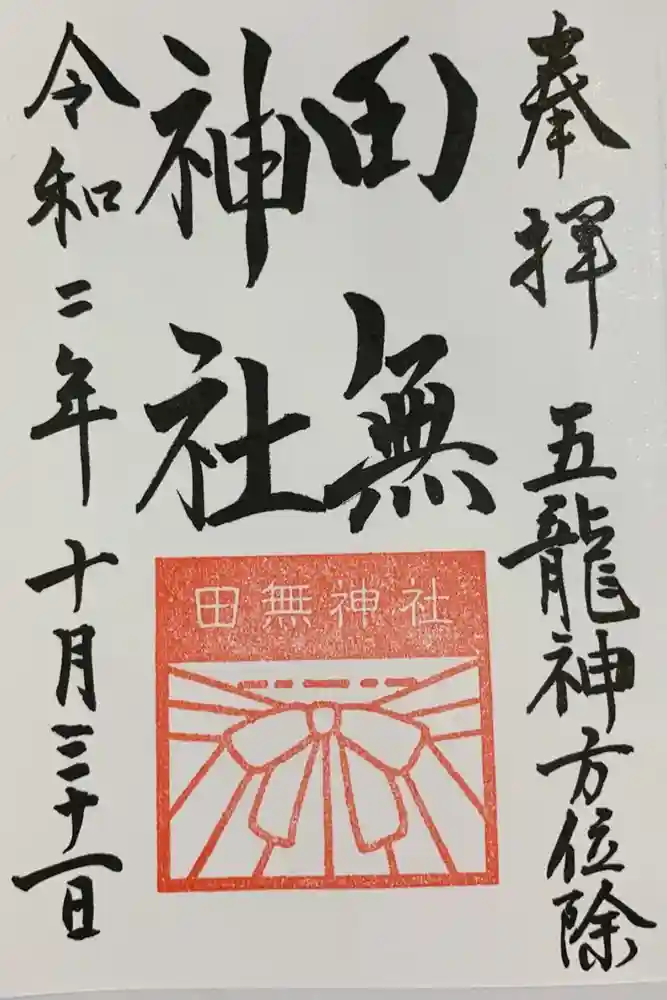 奉拝 五龍神方位除
田無
神社
令和二年十月三十一日
田無神社